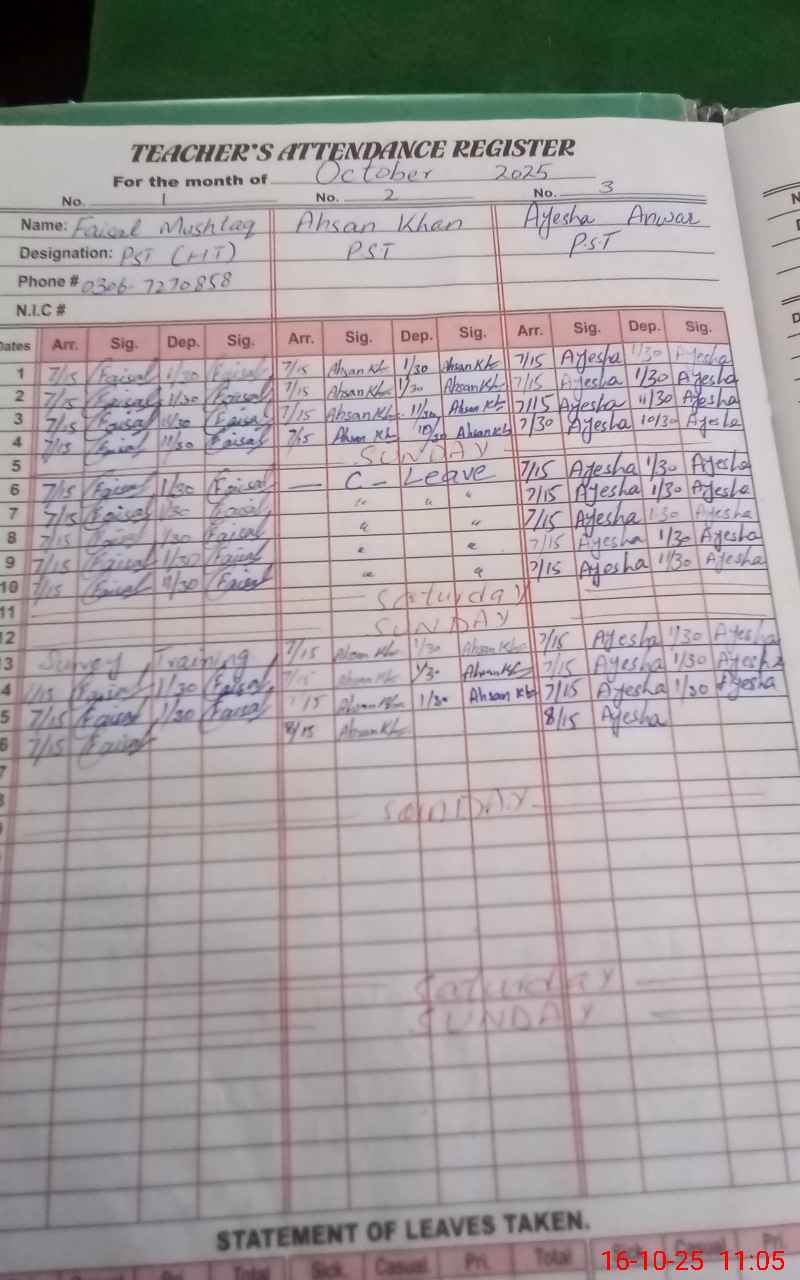 TEACHER'S ATTENDANCE REGISTER
For the month of October 2025
No. 1 No. 2 No. 3
Name: Faisal Mushtaq Ahsan Khan Ayesha Anwar
Designation: PST (HT) PST P.S.T
Phone # 0306-7270858
N.I.C #
Dates Arr. Sig. Dep. Sig. Arr. Sig. Dep. Sig. Arr. Sig. Dep. Sig.
1 7/15 Faisal 1/30 Faisal 7/15 Ahsan Kh 1/30 Ahsan Kh 7/15 Ayesha 1/30 Ayesha
2 7/15 Faisal 11/30 Faisal 7/15 Ahsan Kh 1/30 Ahsan Kh 7/15 Ayesha 1/30 Ayesha
3 7/15 Faisal 11/30 Faisal 7/15 Ahsan Kh 11/30 Ahsan Kh 7/15 Ayesha 11/30 Ayesha
4 7/15 Faisal 11/30 Faisal 7/15 Ahsan Kh 10/30 Ahsan Kh 7/30 Ayesha 10/30 Ayesha
5 SUNDAY
6 7/15 Faisal 1/30 Faisal — C - Leave 7/15 Ayesha 1/30 Ayesha
7 7/15 Faisal 1/30 Faisal " " " 7/15 Ayesha 1/30 Ayesha
8 7/15 Faisal 1/30 Faisal " " 7/15 Ayesha 1:30 Ayesha
9 7/15 Faisal 1/30 Faisal " " 7/15 Ayesha 1/30 Ayesha
10 7/15 Faisal 11/30 Faisal " " 7/15 Ayesha 1/30 Ayesha
11 Saturday
12 SUNDAY
3 Survey Training 7/15 Ahsan Kh 1/30 Ahsan Kh 7/15 Ayesha 1/30 Ayesha
4 7/15 Faisal 1/30 Faisal 7/15 Ahsan Kh 1/30 Ahsan Kh 7/15 Ayesha 1/30 Ayesha
5 7/15 Faisal 1/30 Faisal 7/15 Ahsan Kh 1/30 Ahsan Kh 7/15 Ayesha 1/30 Ayesha
6 7/15 Faisal 8/15 Ahsan Kh 8/15 Ayesha
7
SUNDAY
Saturday
SUNDAY
STATEMENT OF LEAVES TAKEN.
Pri. Total Sick. Casual Pri. Total Sick. Casual Pri.
16-10-25 11:05